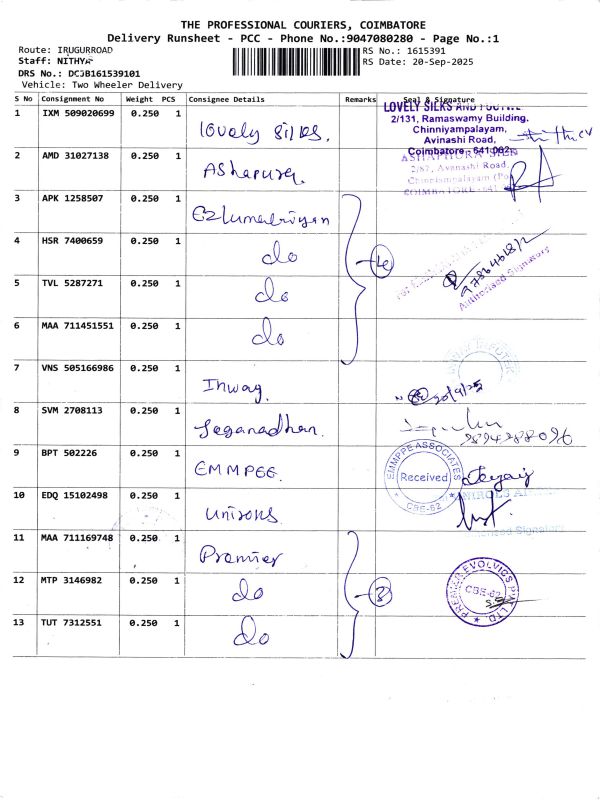 THE PROFESSIONAL COURIERS, COIMBATORE
Delivery Runsheet - PCC - Phone No.:9047080280 - Page No.:1
Route: IRUGURROAD
RS No.: 1615391
Staff: NITHYA
RS Date: 20-Sep-2025
DRS No.: DCJB161539101
Vehicle: Two Wheeler Delivery
S No Consignment No Weight PCS Consignee Details Remarks Seal & Signature
1 IXM 509020699 0.250 1 lovely silks.
LOVELY SILKS AND
2/131, Ramaswamy Building,
Chinniyampalayam,
Avinashi Road,
Coimbatore - 641 062
2 AMD 31027138 0.250 1 Ashapura.
2/87, Avanashi Road,
Chinniampalayam (Po)
COIMBATORE-641
3 APK 1258507 0.250 1
4 HSR 7400659 0.250 1 do
5 TVL 5287271 0.250 1 do
Authorised Signatory
6 MAA 711451551 0.250 1 do
7 VNS 505166986 0.250 1 Inway.
20/9/25
8 SVM 2708113 0.250 1 Jeganadhan.
9894288096
9 BPT 502226 0.250 1 EMMPEE.
EMMPPE ASSOCIATES
Received
CBE-62
10 EDQ 15102498 0.250 1 Unisons.
11 MAA 711169748 0.250 1 Premier
12 MTP 3146982 0.250 1 do 3
PREMIER EVOLVICS PVT. LTD.
CBE-62
13 TUT 7312551 0.250 1 do